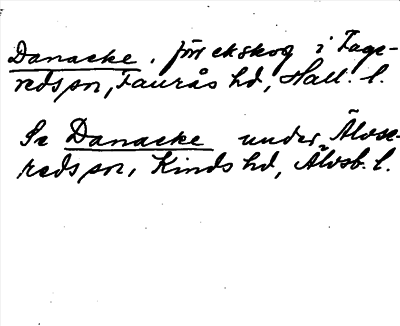 Danacke, förr ekskog i Fage-
reds sn, Faurås hd, Hall. l.
Se Danacke under Älvse-
reds sn, Kinds hd, Älvsb. l.